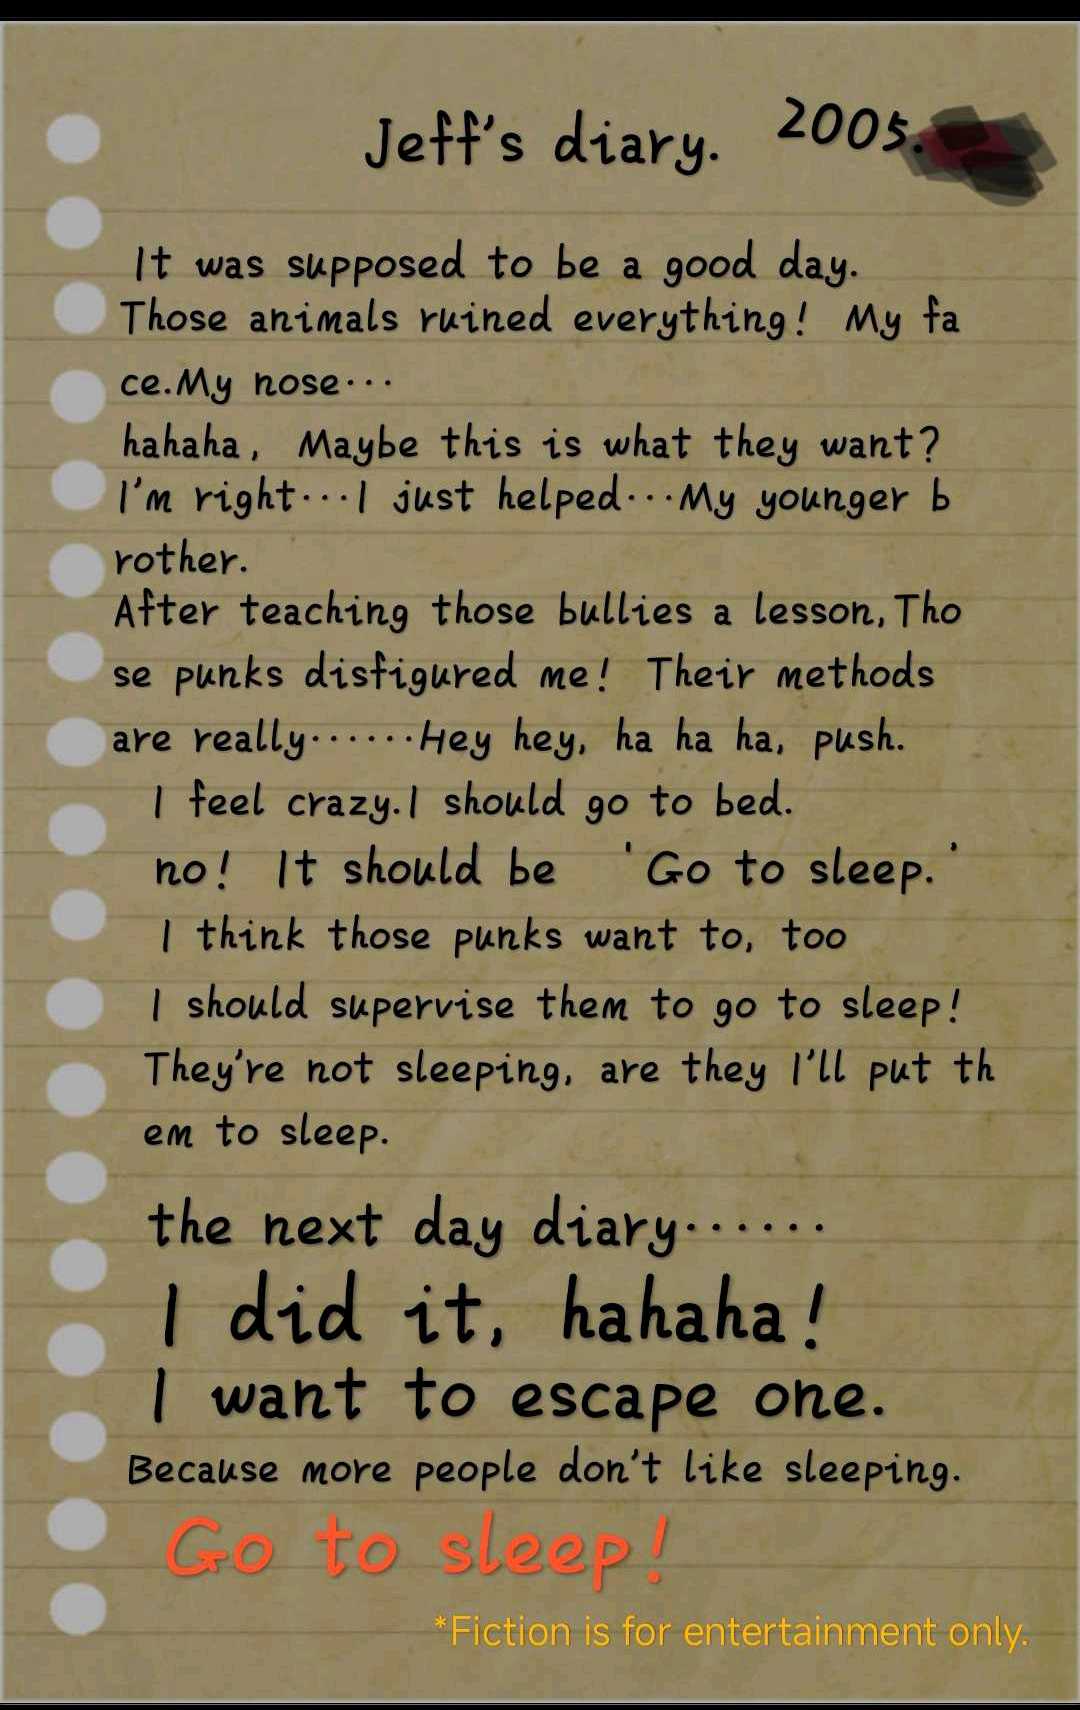 Jeff's diary. 2005.
It was supposed to be a good day.
Those animals ruined everything! My fa
ce.My nose···
hahaha, Maybe this is what they want?
I'm right···I just helped···My younger b
rother.
After teaching those bullies a lesson,Tho
se punks disfigured me! Their methods
are really······Hey hey, ha ha ha, push.
I feel crazy.I should go to bed.
no! It should be 'Go to sleep.'
I think those punks want to, too
I should supervise them to go to sleep!
They're not sleeping, are they I'll put th
em to sleep.
the next day diary······
I did it, hahaha!
I want to escape one.
Because more people don't like sleeping.
Go to sleep!
*Fiction is for entertainment only.